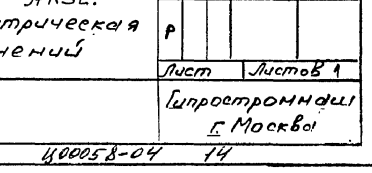 трическая
нений
Р
Лист Листов 1
Гипростроммаш
г. Москва
Ц00058-04 14